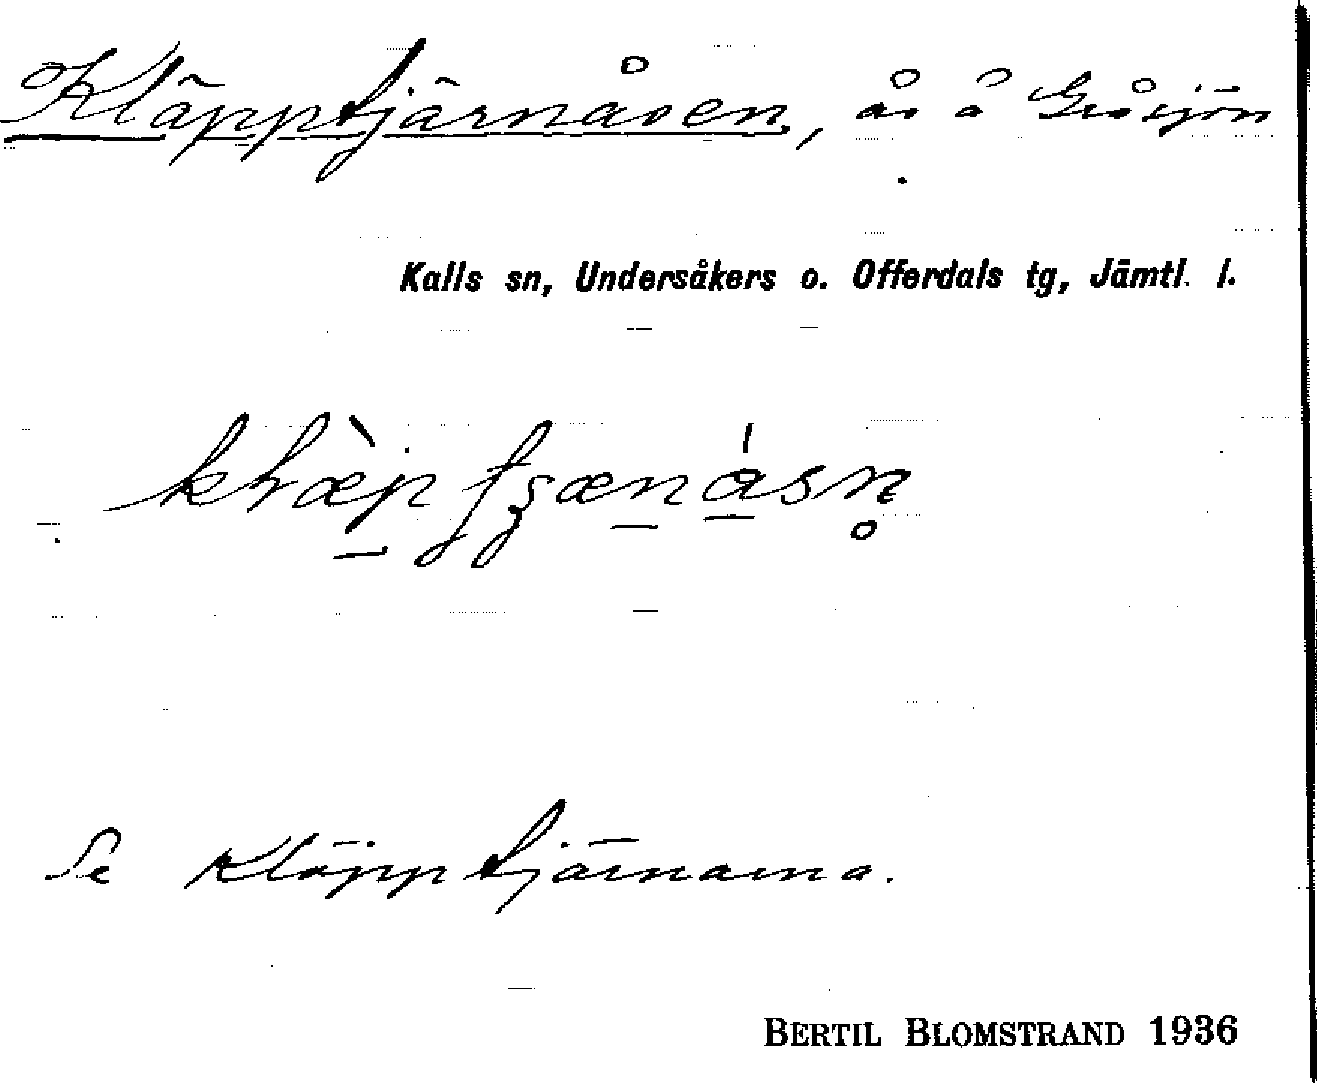 Kläpptjärnåsen, ås å Gråsjön
Kalls sn, Undersåkers o. Offerdals tg, Jämtl. l.
Se Kläpptjärnarna.
BERTIL BLOMSTRAND 1936